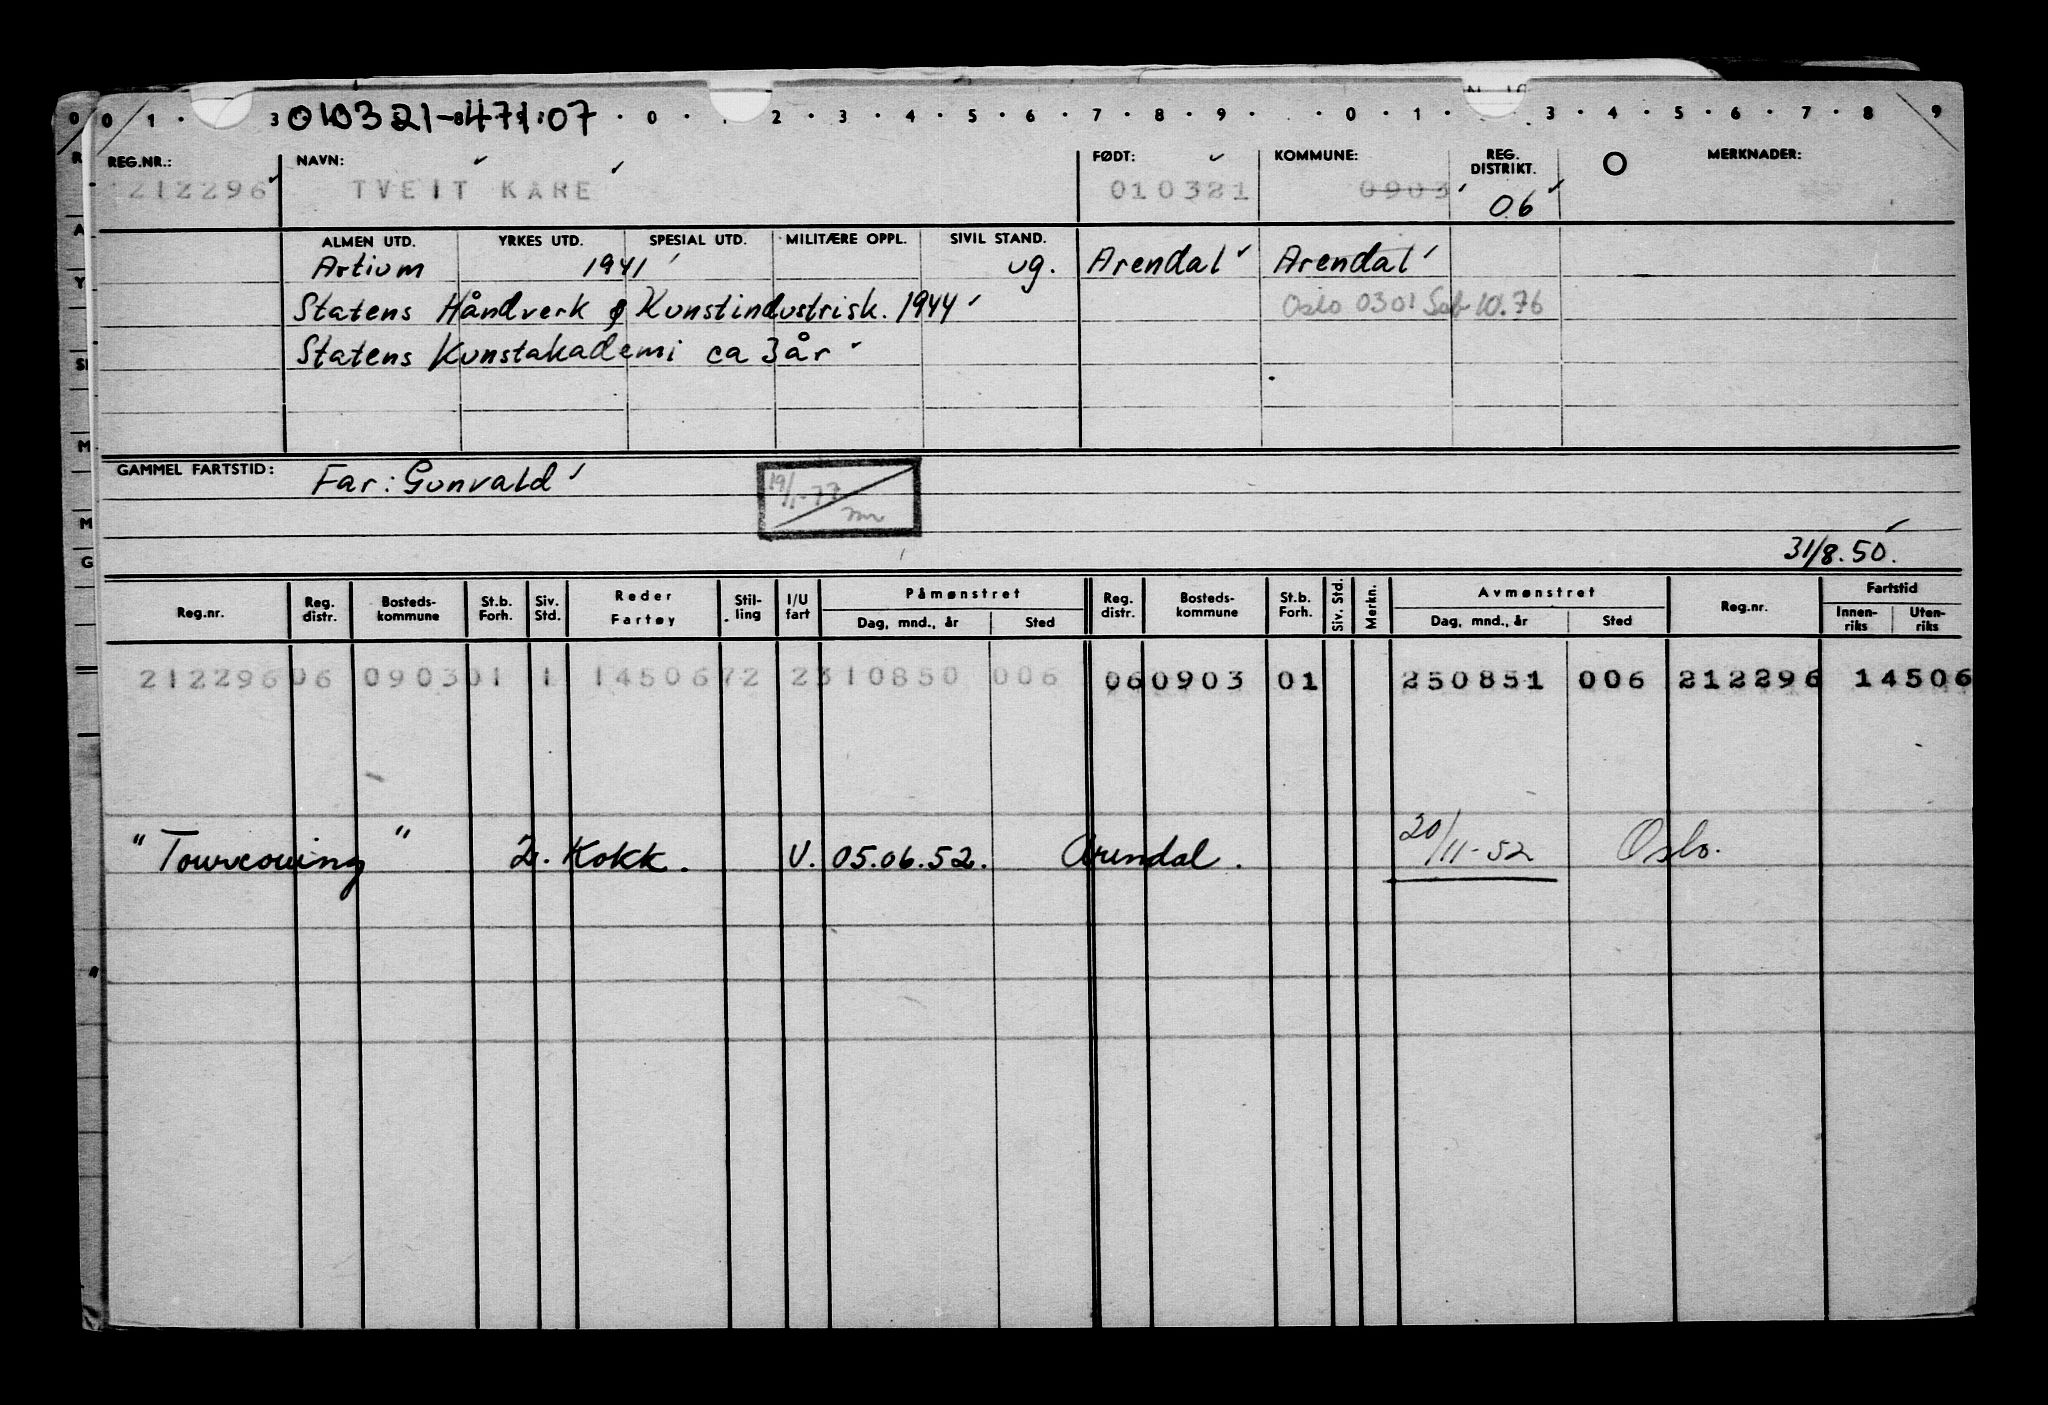 010321-471.07
0 1 · 3 · 0 · 2 · 3 · 4 · 5 · 6 · 7 · 8 · 9 · · 0 · 1 · 3 · 4 · 5 · 6 · 7 · 8 9
REG.NR.: NAVN: FØDT: KOMMUNE: REG. DISTRIKT. MERKNADER:
212296 TVEIT KARE 010321 0903 06
ALMEN UTD. YRKES UTD. SPESIAL UTD. MILITÆRE OPPL. SIVIL STAND.
Artium 1941 ug. Arendal Arendal
Statens Håndverk & Kunstindustrisk. 1944 Oslo 0301 10.76
Statens Kunstakademi ca 3 år
GAMMEL FARTSTID: Far: Gunvald
19/1-77
31/8.50.
Reg.nr. Reg. distr. Bosteds-kommune St.b. Forh. Siv. Std. Reder Fartøy Stil-ling I/U fart Påmønstret Dag, mnd., år Sted Reg. distr. Bosteds-kommune St.b. Forh. Siv. Std. Merkn. Avmønstret Dag, mnd., år Sted Reg.nr. Fartstid Innen-riks Uten-riks
212296 06 0903 01 1 1450672 2 310850 006 06 0903 01 250851 006 212296 14506
"Tourcoing" 2. Kokk. U. 05.06.52. Arendal. 20/11-52 Oslo.